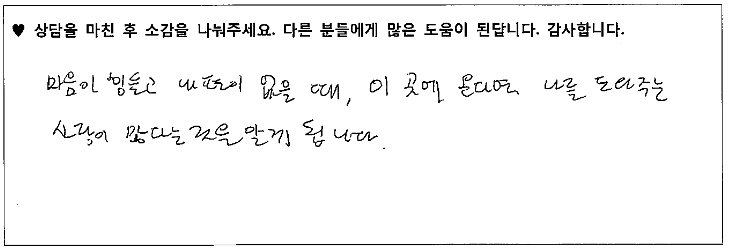 ♥ 상담을 마친 후 소감을 나눠주세요. 다른 분들에게 많은 도움이 된답니다. 감사합니다.
마음이 힘들고 내편이 없을 때, 이 곳에 온다면 나를 도와주는
사람이 많다는 것을 알게 됩니다.